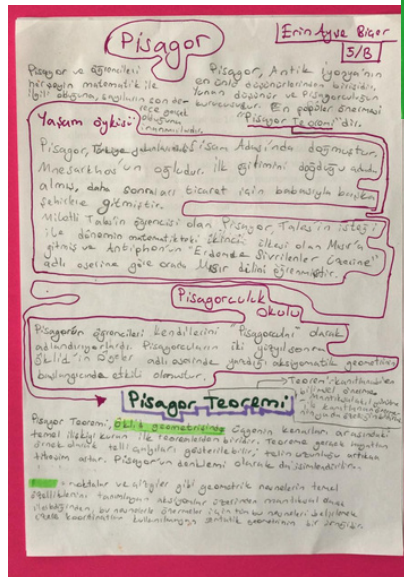 Pisagor
Erin Ayşe Biçer
5/B
Pisagor ve öğrencileri
herşeyin matematik ile
ilgili olduğuna, sayıların son derece gerçek
olduğuna
inanmışlardır.
Pisagor, Antik İyonya'nın
en ünlü düşünürlerinden birisidir.
Yunan düşünür ve Pisagorculuğun
kurucusudur. En popüler önermesi
"Pisagor Teoremi"dir.
Yaşam öyküsü
Pisagor, Sisam Adası'nda doğmuştur.
Mnesarkhos'un oğludur. İlk eğitimini doğduğu adada
almış, daha sonraları ticaret için babasıyla birçok
şehirlere gitmiştir.
Miletli Tales'in öğrencisi olan Pisagor, Tales'in isteği
ile dönemin matematikteki ülkesi olan Mısır'a
gitmiş ve Antiphon'un "Erdemde Sivrilenler Üzerine"
adlı eserine göre orada Mısır dilini öğrenmiştir.
Pisagorculuk
Okulu
Pisagor'un öğrencileri kendilerini "Pisagorcular" olarak
adlandırıyorlardı. Pisagorcuların iki yüzyıl sonra
Öklid'in Öğeler adlı eserinde yarattığı aksiyomatik geometrinin
başlangıcında etkili olmuştur.
Pisagor Teoremi
Teorem: kanıtlanabilen
bilimsel önerme
Pisagor Teoremi, öklid geometrisinde üçgenin kenarları arasındaki
temel ilişkiyi kuran ilk teoremlerden biridir. Teoreme gerçek hayattan
örnek olarak telli çalgılar gösterilebilir; telin uzunluğu arttıkça
titreşim artar. Pisagor'un denklemi olarak da isimlendirilir.
= noktalar ve çizgiler gibi geometrik nesnelerin temel
özelliklerini tanımlayan aksiyomlar üzerinden mantıksal olarak